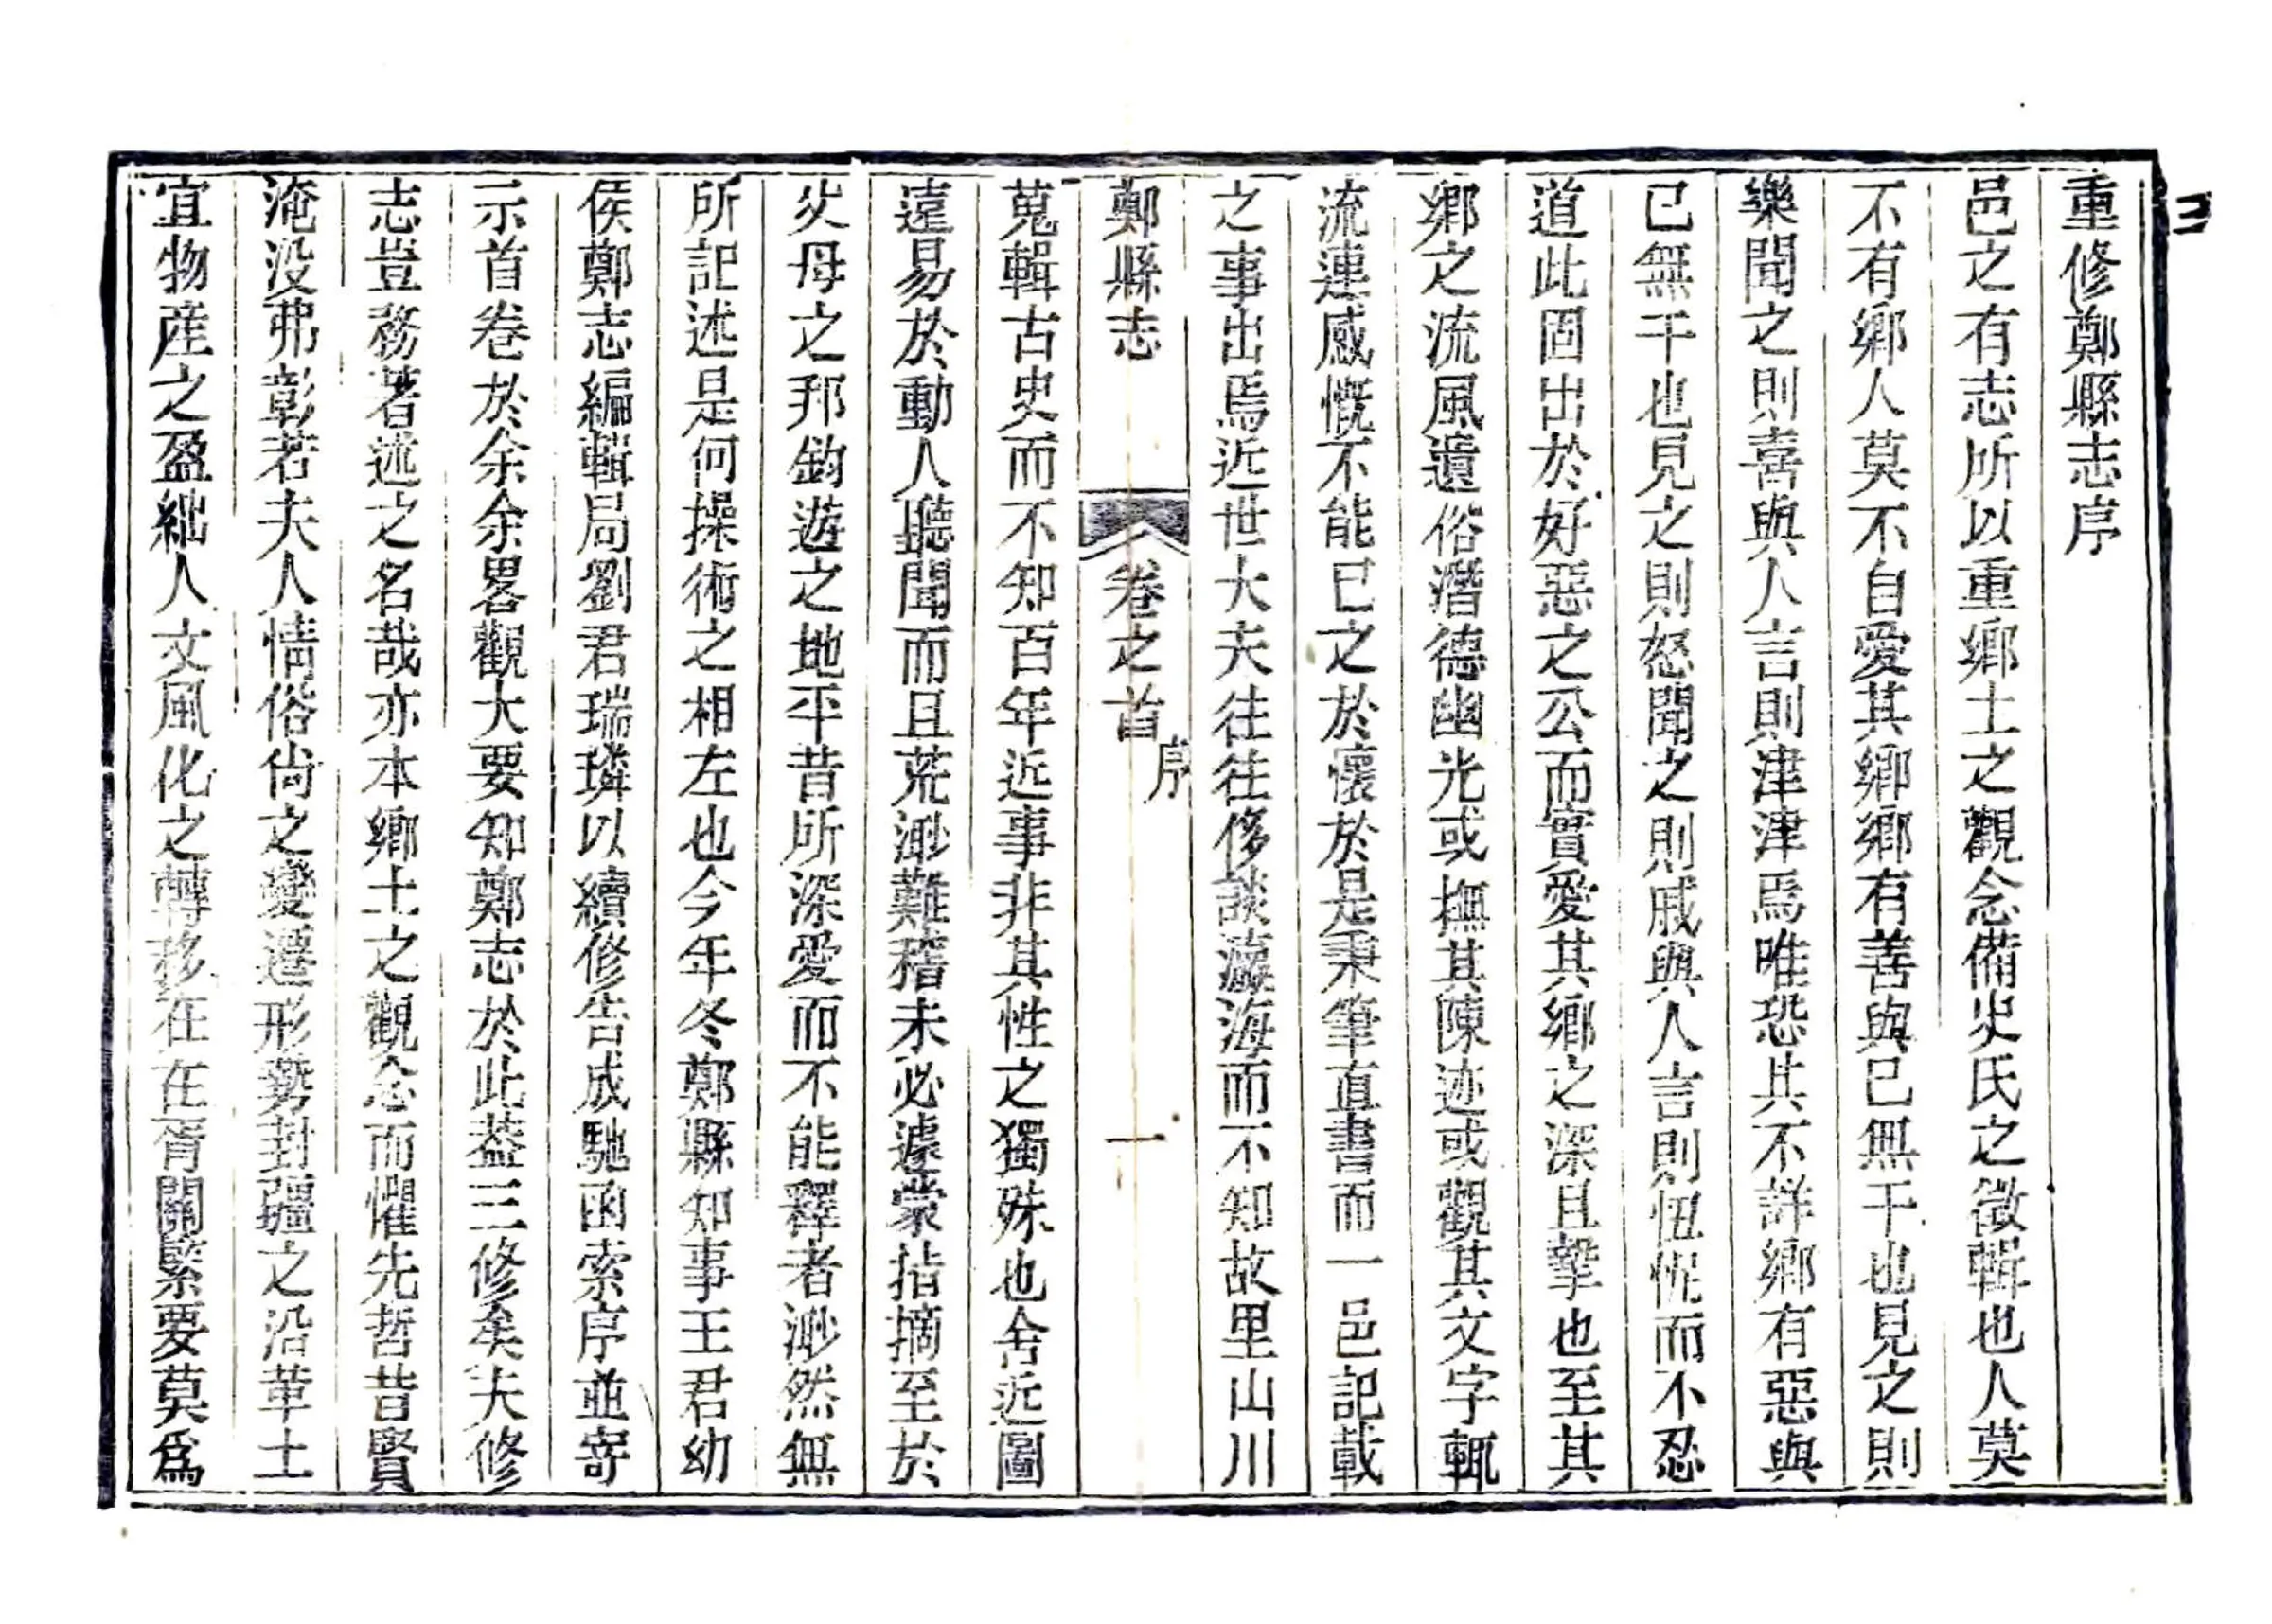 重修鄭縣志序
邑之有志所以重鄉土之觀念備史氏之徵輯也人莫
不有鄉人莫不自愛其鄉鄉有善與已無干也見之則
樂聞之則喜與人言則津津焉唯恐其不詳鄉有惡與
已無干也見之則怒聞之則戚與人言則忸怩而不忍
道此固出於好惡之公而實愛其鄉之深且摯也至其
鄉之流風遺俗潛德幽光或撫其陳迹或觀其文字輒
流連感慨不能已之於懷於是秉筆直書而一邑記載
之事出焉近世大夫往往侈談瀛海而不知故里山川
鄭縣志 卷之首 序 一
蒐輯古史而不知百年近事非其性之獨殊也舍近圖
遠易於動人聽聞而且荒渺難稽未必遽蒙掂摘至於
父母之邦釣遊之地平昔所深愛而不能釋者渺然無
所記述是何操術之相左也今年冬鄭縣知事王君幼
侯鄭志編輯局劉君瑞璘以續修告成馳函索序並寄
示首卷於余余畧觀大要知鄭志於此葢三修矣夫修
志豈務著述之名哉亦本鄉土之觀念而懼先哲昔賢
淹沒弗彰若夫人情俗尙之變遷形勢封疆之沿革土
宜物産之盈絀人文風化之轉移在在胥關緊要莫爲